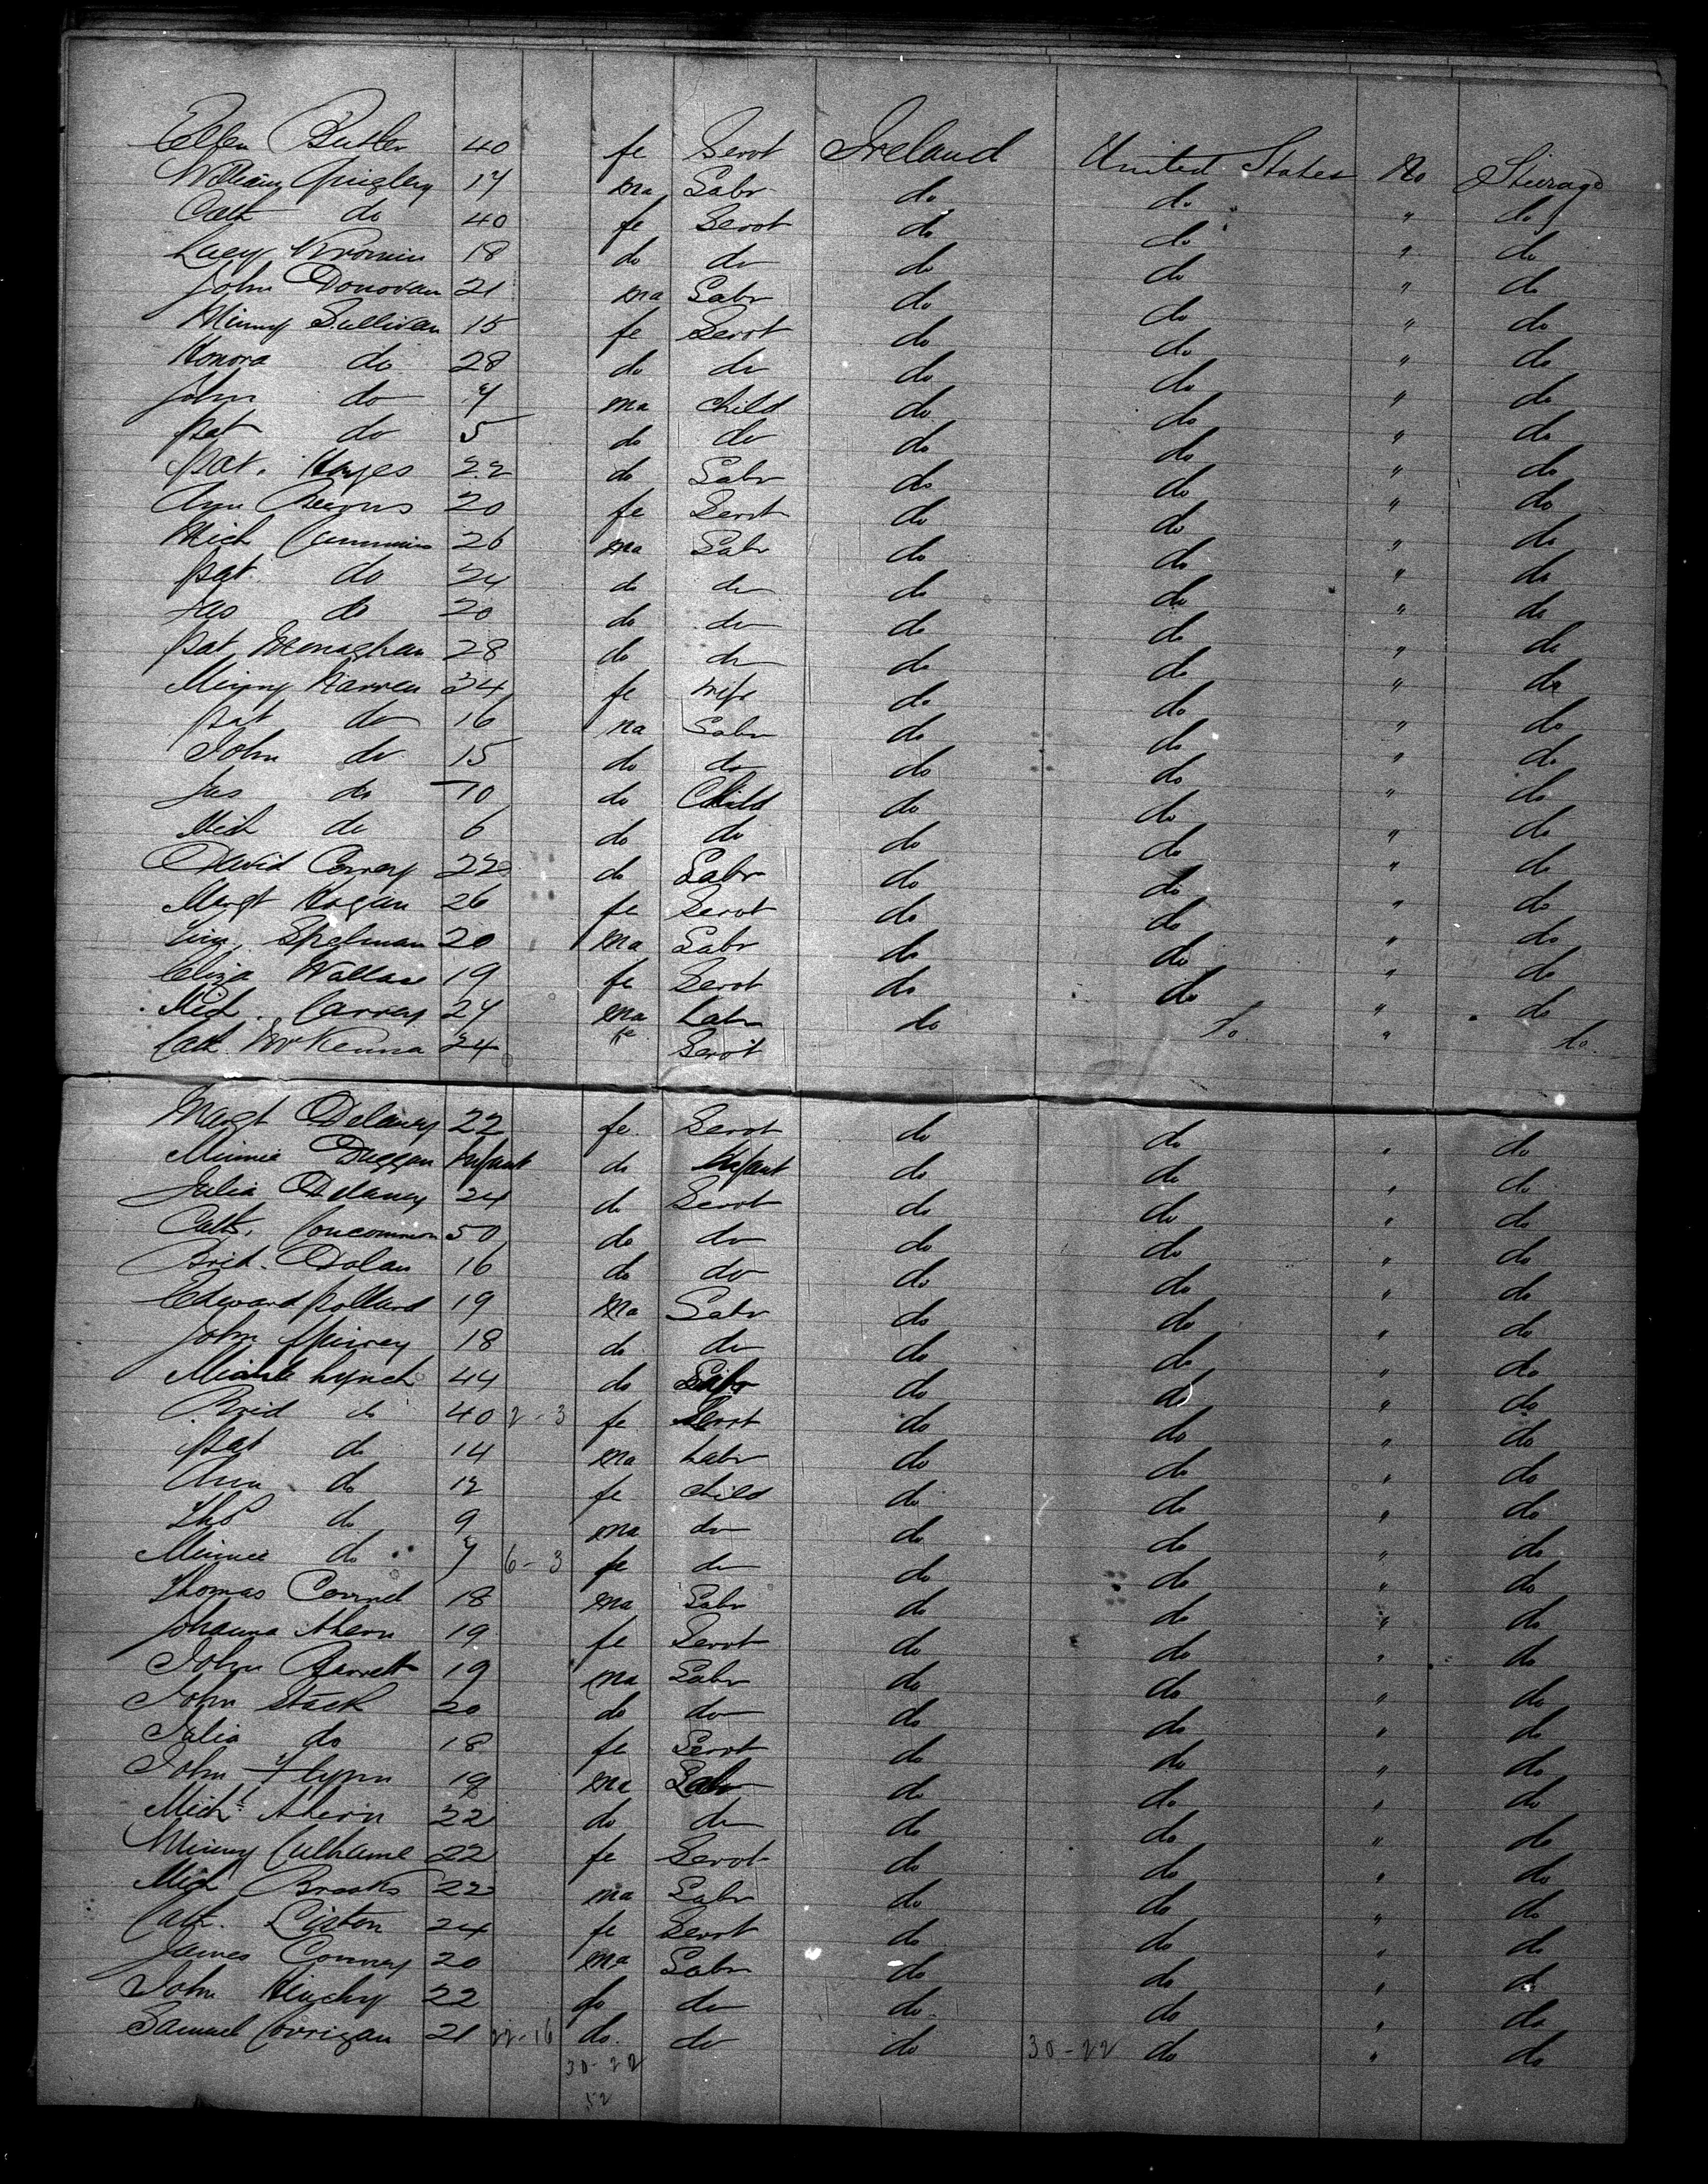 Ellen Butler 40 fe Servt Ireland United States No Steerage
William Quigley 17 ma Labr do do " do
Cath do 40 fe Servt do do " do
Lacy 18 do do do do " do
John Donovan 21 ma Labr do do " do
Minny Sullivan 15 fe Servt do do " do
Honora do 28 do do do do " do
John do 7 ma child do do " do
Pat do 5 do do do do " do
Pat. Hayes 22 do Labr do do " do
Ann 20 fe Servt do do " do
Mich Cummins 26 ma Labr do do " do
Pat do 24 do do do do " do
Jas do 20 do do do do " do
Pat Monaghan 28 do do do do " do
Minny Warren 34 fe wife do do " do
Pat do 16 ma Labr do do " do
John do 15 do do do do " do
Jas do 10 do Child do do " do
Mich do 6 do do do do " do
David Conroy 22 do Labr do do " do
Margt Hogan 26 fe Servt do do " do
Spelman 20 ma Labr do do " do
Eliza Wallace 19 fe Servt do do " do
Mich. Carray 24 ma Labr do do " do
Cath McKenna 24 fe Servt " do
Margt Delaney 22 fe Servt do do " do
Minnie Duggan Infant do Infant do do " do
Julia Delaney 24 do Servt do do " do
Cath. Concannon 50 do do do do " do
Brid. Dolan 16 do do do do " do
Edward Pollard 19 ma Labr do do " do
John Spirrey 18 do do do do " do
Michl Lynch 44 do Labr do do " do
Brid do 40 2-3 fe Servt do do " do
Pat do 14 ma Labr do do " do
Ann do 12 fe child do do " do
Thos do 9 ma do do do " do
Minnie do 7 6-3 fe do do do " do
Thomas Connel 18 ma Labr do do " do
Johanna Ahern 19 fe Servt do do " do
John Barrett 19 ma Labr do do " do
John Stack 20 do do do do " do
Julia do 18 fe Servt do do " do
John Flynn 19 ma Labr do do " do
Michl Ahern 22 do do do do " do
Minny Culhane 22 fe Servt do do " do
Mich Brooks 22 ma Labr do do " do
Cath. Liston 24 fe Servt do do " do
James Conway 20 ma Labr do do " do
John Hinchy 22 do do do do " do
Samuel Corrigan 21 22-16 do do do 30-22 do " do
30-22
52